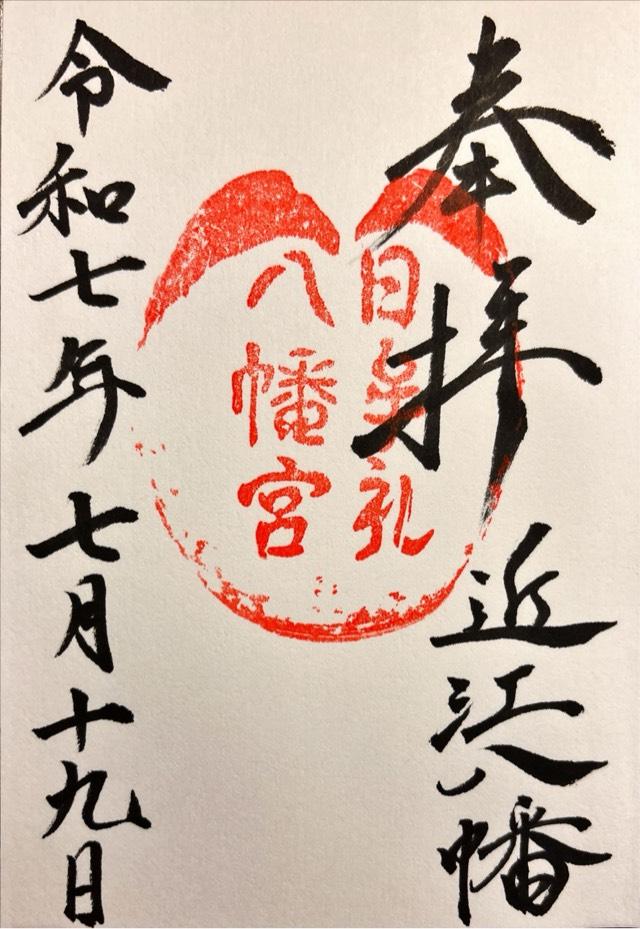 奉拝 近江八幡
日牟礼
八幡宮
令和七年七月十九日